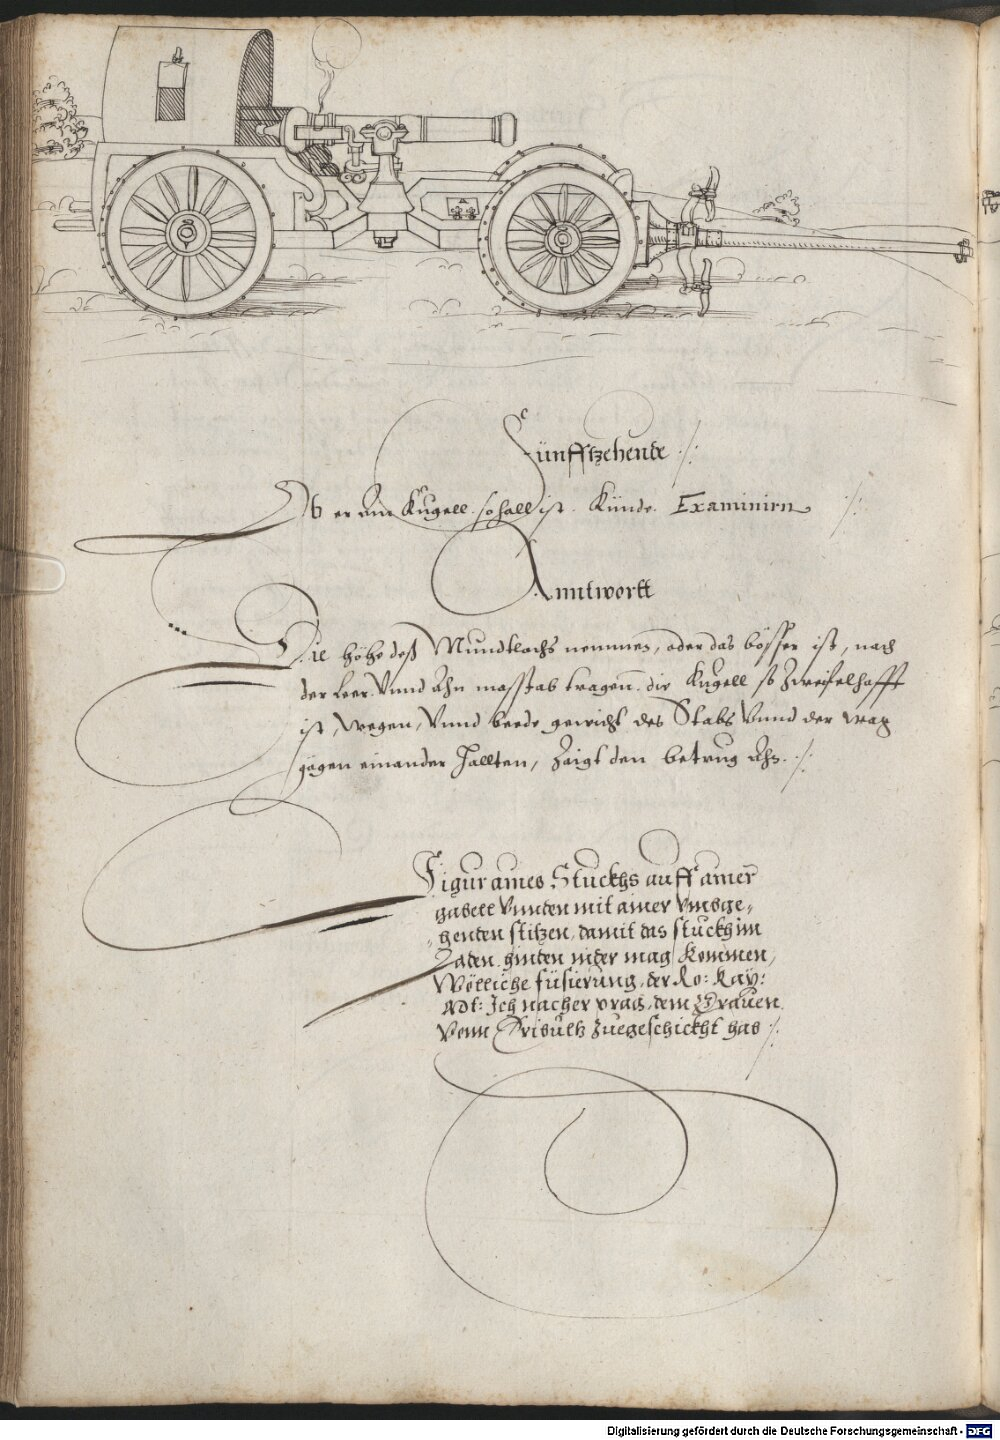 Fünfftzehende
Ob er ain Kugell so hall ist. Künde. Examinirn
Anntwortt
Die höhe deß Mundtlochs nemmen, oder das bösser ist, nach
der Leer. Vnnd Ahn masstab tragen. die Kugell so Zweifelhafft
ist, wegen, Vnnd beede gewicht des Stabs Vnnd der wag
gögen einander Hallten, Zaigt den betrug Ahn.
Figur aines Stuckhs auff ainer
gabell Vnnden mit ainer Vmbge-
henden stitzen, damit das stuckh im
Laden hinden nider mag Kommen,
Wölliche füsierung, der Rö: Kay:
Mt: Ich nacher prag, dem Grauen
Vonn Zuegeschickht hab
Digitalisierung gefördert durch die Deutsche Forschungsgemeinschaft - DFG